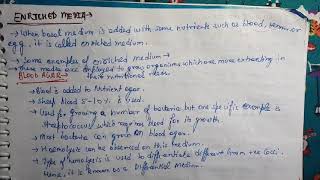 ENRICHED MEDIA→
→ When basal medium is added with some nutrients such as blood, serum or
egg, it is called enriched medium.
→ Some examples of enriched medium→
→ These media are employed to grow organisms which are more exacting in
their nutritional needs.
BLOOD AGAR→
→ Blood is added to Nutrient agar.
→ Sheep blood 5-10% is used.
→ Used for growing a number of bacteria but one specific example is
Streptococcus which requires blood for its growth.
→ Most bacteria can grow on blood agar.
→ Haemolysis can be observed on this medium.
→ Type of hemolysis is used to differentiate different Gram +ve Cocci.
Hence, it is known as a Differential Medium.